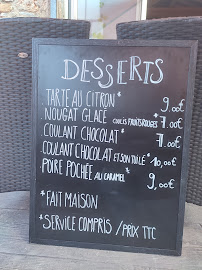 DESSERTS
. TARTE AU CITRON * 9.00€
. NOUGAT GLACÉ COULIS FRUITS ROUGES * 7.00€
. COULANT CHOCOLAT * 7.00€
. COULANT CHOCOLAT ET SON TUILÉ * 10,00€
. POIRE POCHÉE AU CARAMEL 9,00€
* FAIT MAISON
* SERVICE COMPRIS / PRIX TTC